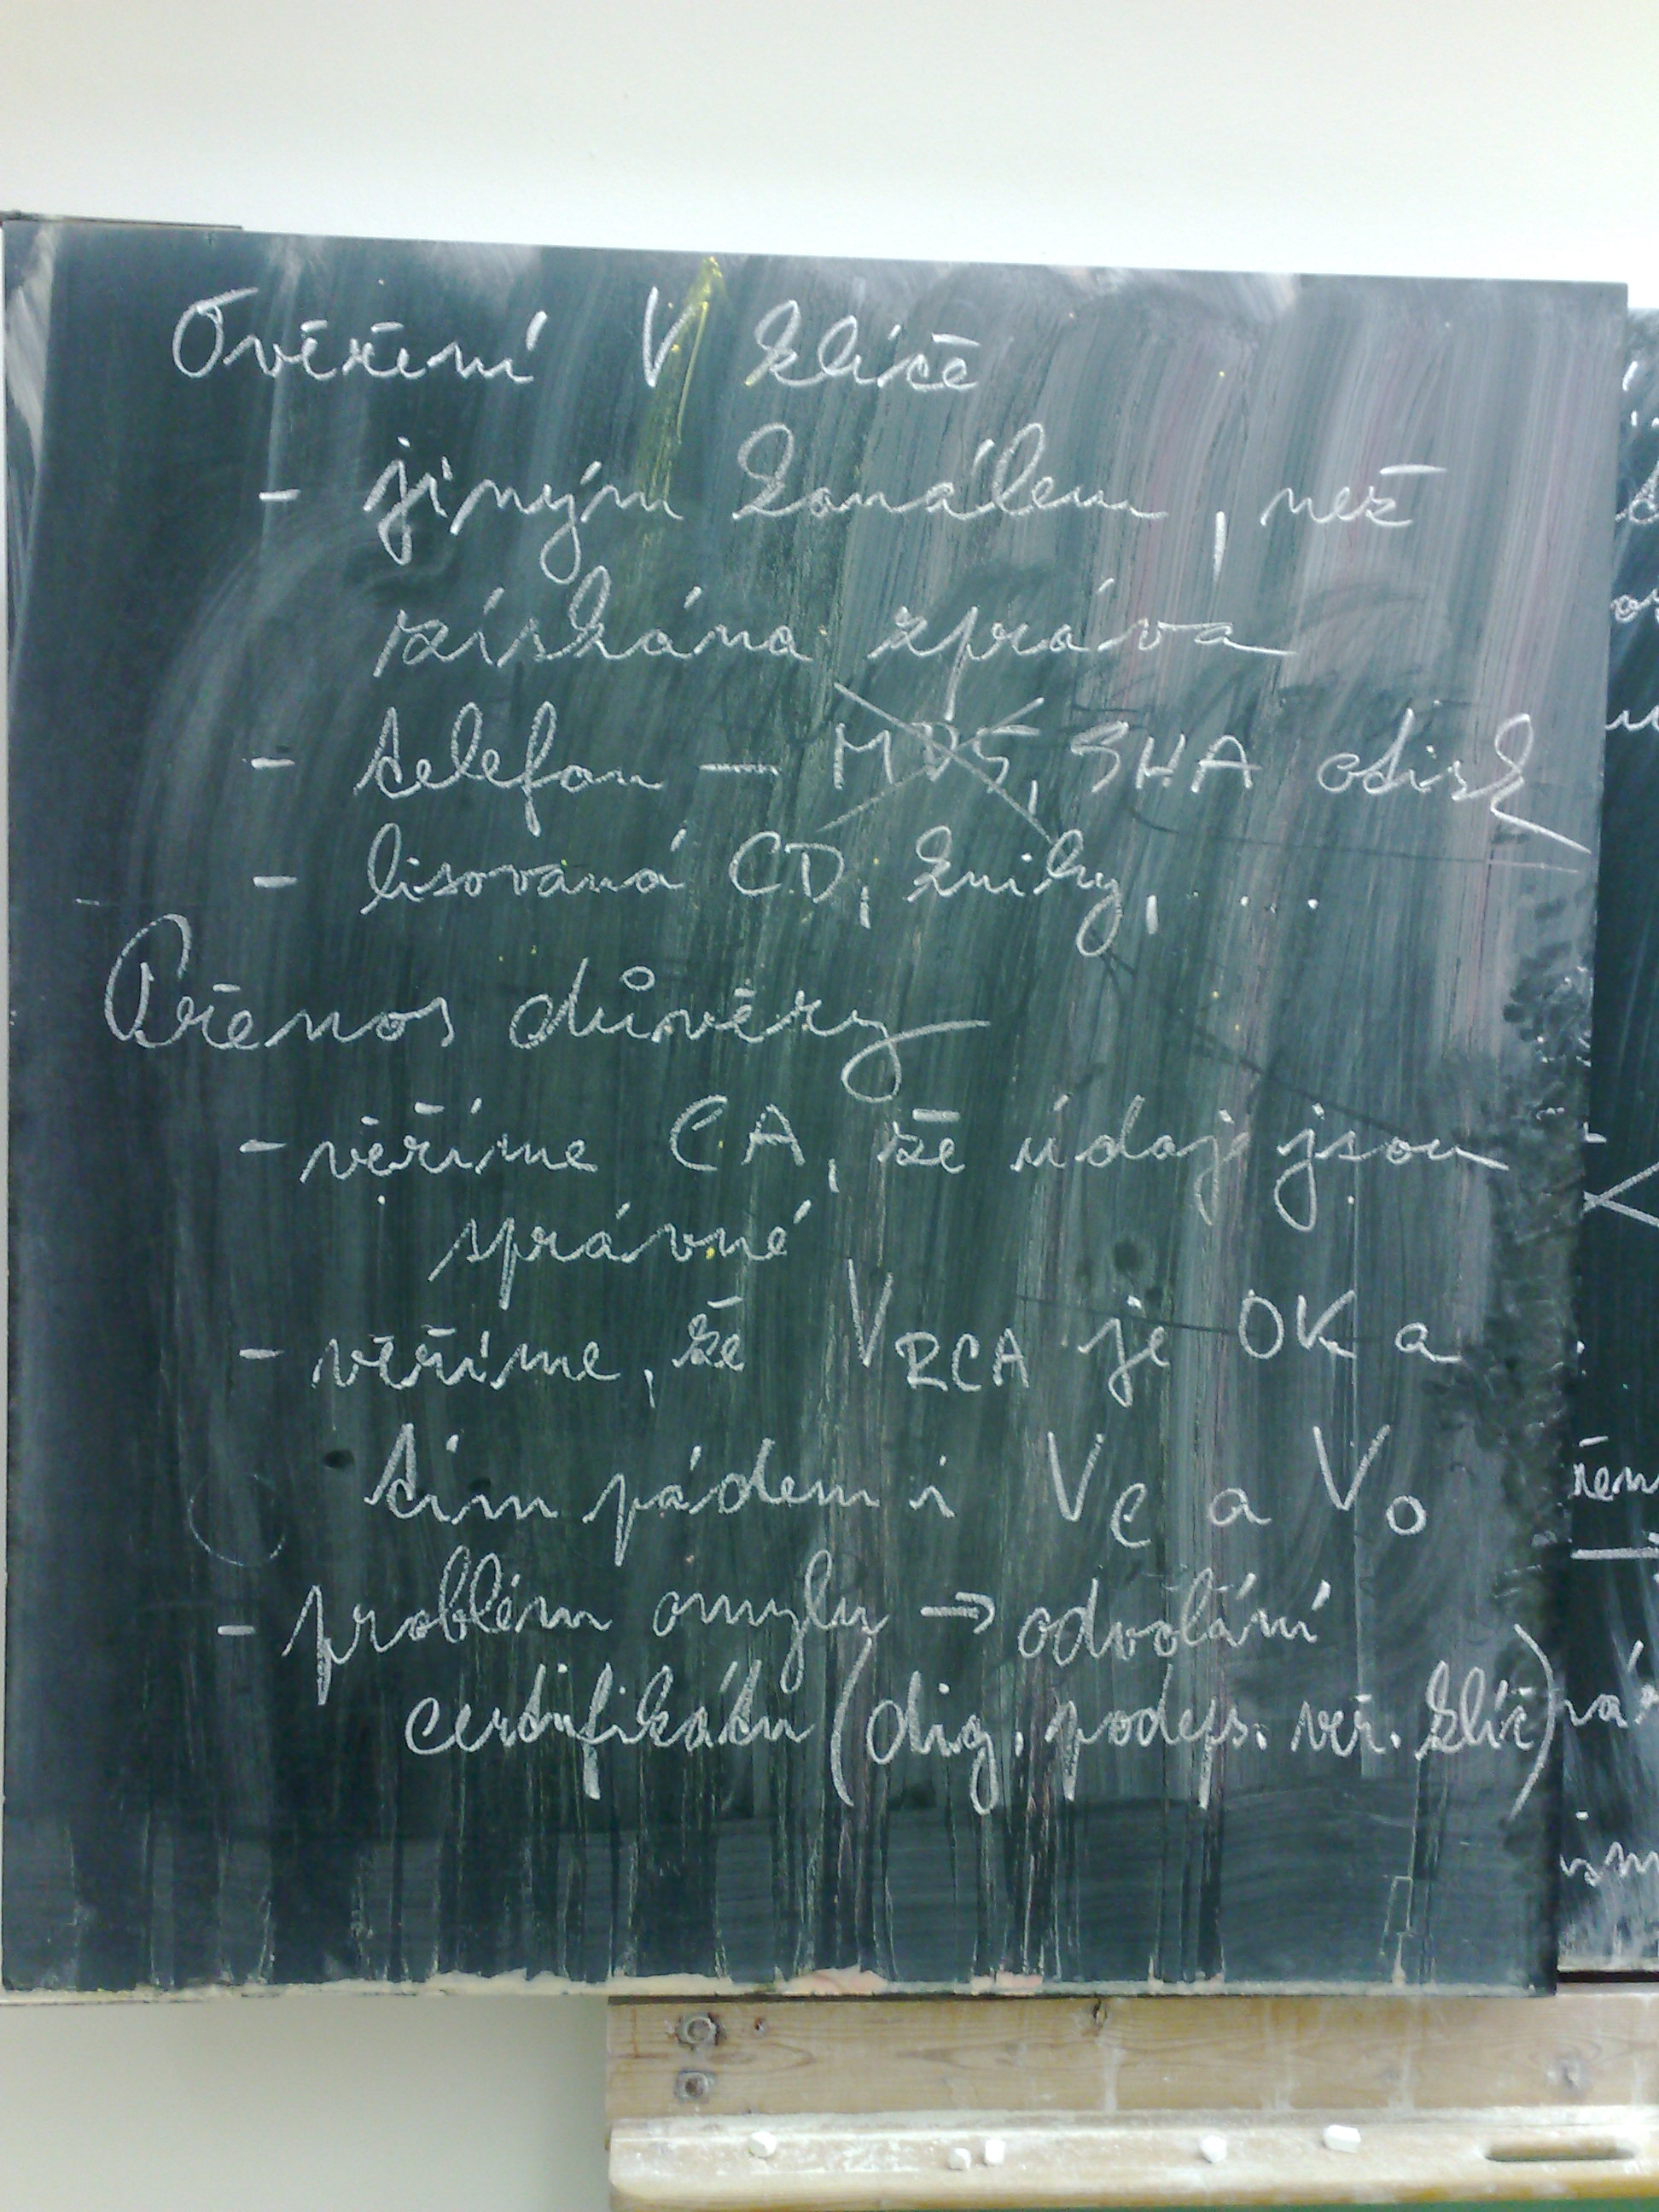 Ověření V klíče
- jiným kanálem, než
získána zpráva
- telefon – MD5, SHA otisk
- lisovaná CD, knihy, ...
Přenos důvěry
- věříme CA, že údaje jsou
správné
- věříme, že V RCA je OK a
tím pádem i V C a V O
- problém omylu → odvolání
certifikátu (dig. podeps. veř. klíč)